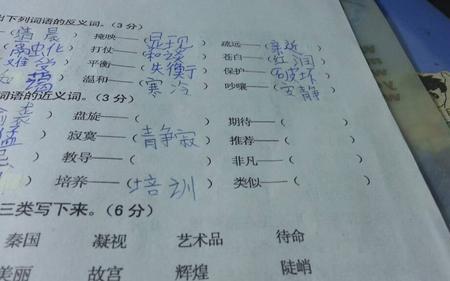 出下列词语的反义词。(3分)
掩映——(显现) 疏远——(亲近
打仗——(和谈 苍白——(红润
平衡——(失衡) 保护——(破坏
温和——(寒冷) 吵嚷——(安静
词语的近义词。(3分)
盘旋——( ) 期待——(
寂寞——(青静寂) 推荐——(
教导——( ) 非凡——(
培养——(培训 ) 类似——(
三类写下来。(6分)
秦国 凝视 艺术品 待命
美丽 故宫 辉煌 陡峭